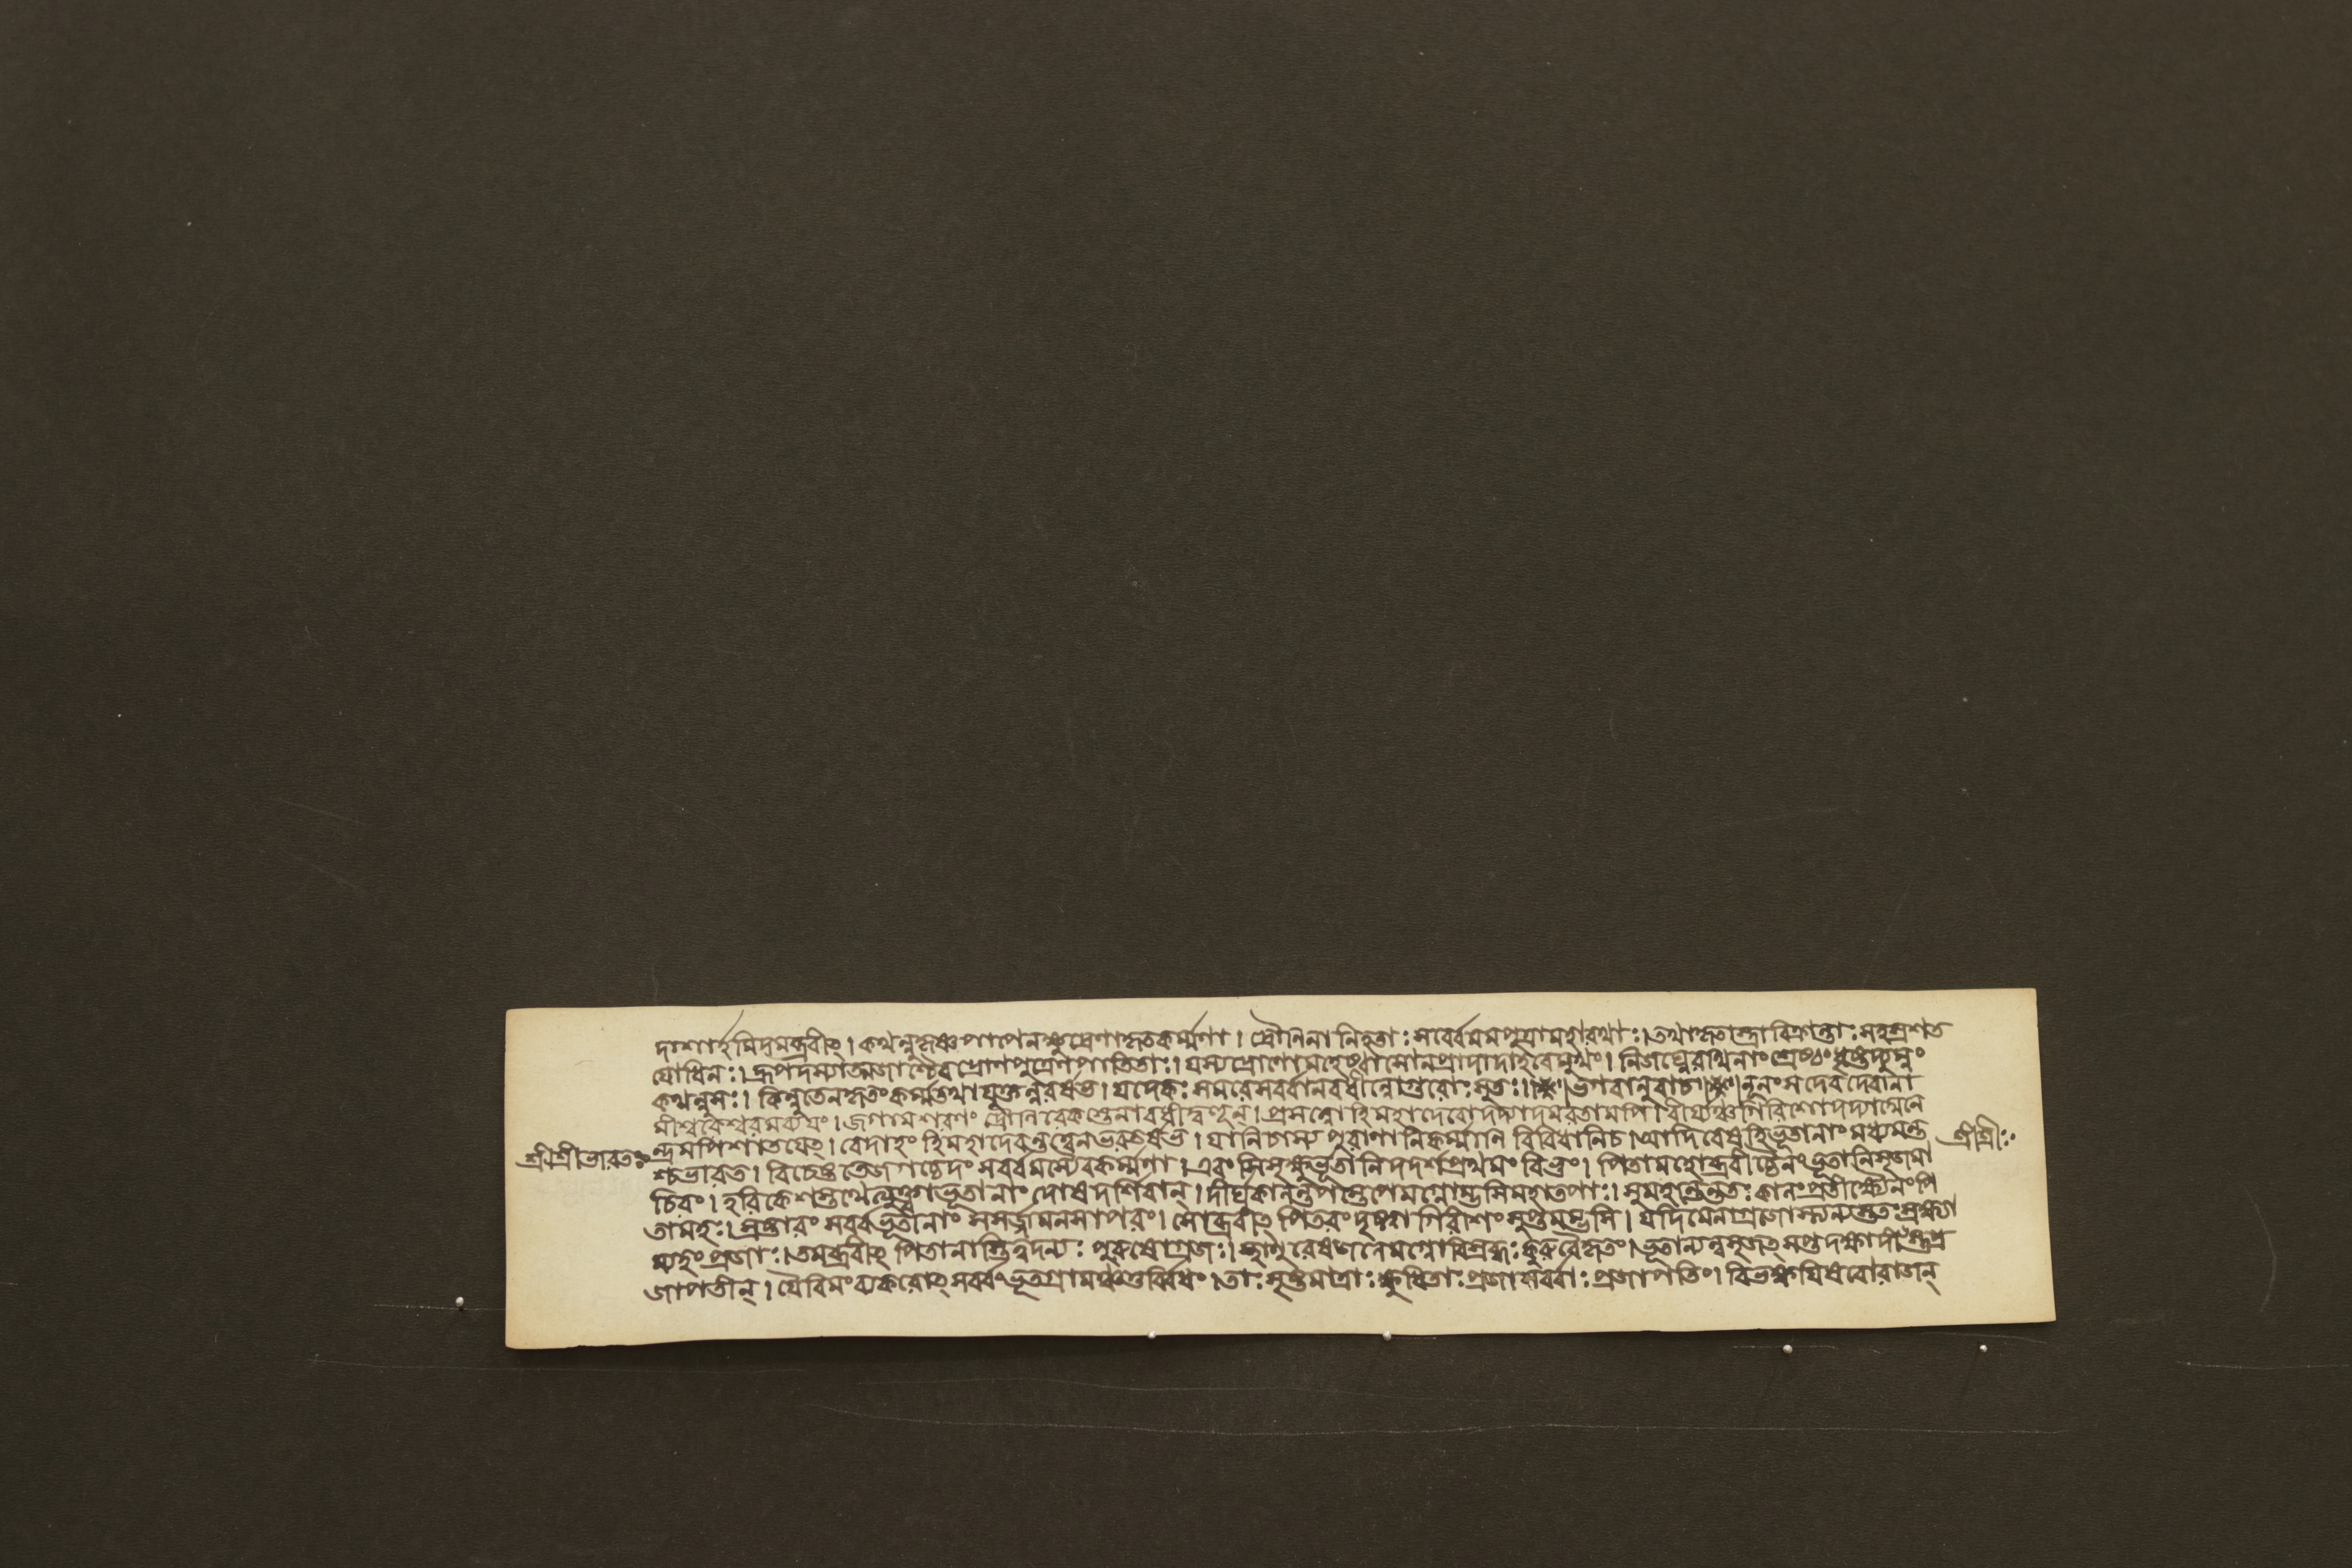 দাশার্হমিদমব্রবীৎ। কথন্নুকৃষ্ণপাপেনক্ষুদ্রেণাকৃতকর্ম্মণা। দ্রৌণিনানিহতাঃসর্ব্বেমমপুত্রামহারথাঃ। তথাকৃতাস্ত্রাবিক্রান্তাঃসহস্রশত
যোধিনঃ। দ্রুপদস্যাত্মজাশ্চৈবদ্রোণপুত্রেণপাতিতাঃ। যস্যদ্রোণোমহেষ্বাসোনপ্রাদাদাহবেমুখং। নিজঘ্নেরথিনাংশ্রেষ্ঠংধৃষ্টদ্যুম্নং
কথন্নুসঃ। কিন্নুতেনকৃতংকর্ম্মতথাযুক্তন্নরর্ষভ। যদেকঃসমরেসর্ব্বানবধীন্নোগুরোঃসুতঃ। ভগবানুবাচ। নূনংসদেবদেবানা
মীশ্বরেশ্বরমব্যয়ং। জগামশরণং দ্রৌণিরেকস্তেনাবধীদ্বহূন্। প্রসন্নোহিমহাদেবোদদ্যাদমরতামপি। বীর্য্যঞ্চগিরিশোদদ্যাদ্যেনে
শ্রীশ্রীভারতঃ ন্দ্রমপিশাতয়েৎ। বেদাহং হিমহাদেবন্তত্ত্বেনভরতর্ষভ। যানিচাস্য পুরাণানিকর্ম্মানি বিবিধানিচ। আদিরেষহিভূতানাংমধ্যমন্ত শ্রীশ্রীঃ
শ্চভারত। বিচেষ্টতেজগচ্চেদংসর্ব্বমস্যৈবকর্ম্মণা। এবংসিসৃক্ষুর্ভূতানিদদর্শপ্রথমং বিভুং। পিতামহোব্রবীচ্চৈনংভূতানিসৃজমা
চিরং। হরিকেশস্তথেত্যুক্ত্বাভূতানাং দোষদর্শিবান্। দীর্ঘকালন্তপস্তেপেমগ্নোম্ভসিমহাতপাঃ। সুমহান্তন্ততঃকালংপ্রতীক্ষ্যৈনংপি
তামহঃ। স্রষ্টারং সর্ব্বভূতানাং সসর্জ্জমনসাপরং। সোব্রবীৎ পিতরংদৃষ্ট্বাগিরিশংসুপ্তমম্ভসি। যদিমেনাগ্রজোস্ত্যন্যস্ততঃস্রক্ষ্যা
ম্যহংপ্রজাঃ। তমব্রবীৎ পিতানাস্তিত্বদন্যঃ পুরুষোগ্রজঃ। স্থাণুরেষজলেমগ্নোবিশ্রব্ধঃকুরুবৈকৃতং। ভূতান্যন্বসৃজৎসপ্তদক্ষাদীংস্তুপ্র
জাপতীন্। যৈরিমংব্যকরোৎসর্ব্বংভূতগ্রামঞ্চতুর্ব্বিধং। তাঃসৃষ্টমাত্রাঃক্ষুধিতাঃপ্রজাঃসর্ব্বাঃপ্রজাপতিং। বিভক্ষয়িষবোরাজন্